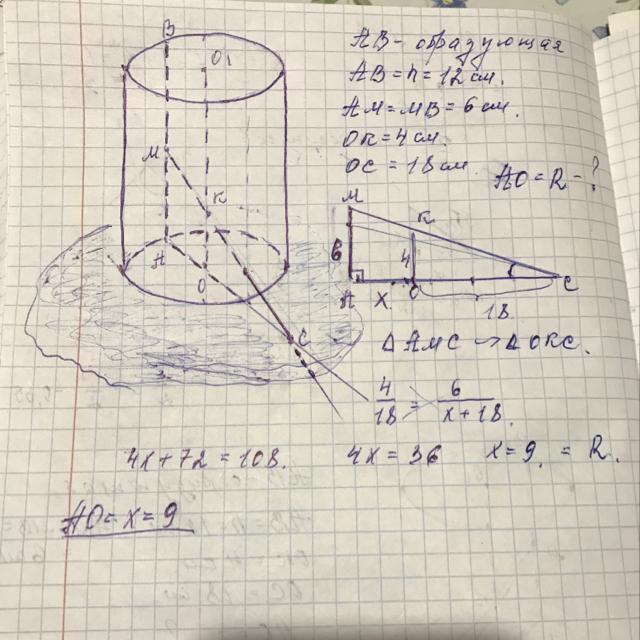 B
O₁
M
K
A
O
C
AB - образующая
AB = h = 12 см.
AM = MB = 6 см.
OK = 4 см.
OC = 18 см
AO = R - ?
M
K
6
4
A
X
O
18
C
Δ AMC ~ Δ OKC.
4/18 = 6/(x+18).
4x + 72 = 108.
4x = 36
x = 9. = R.
AO = x = 9